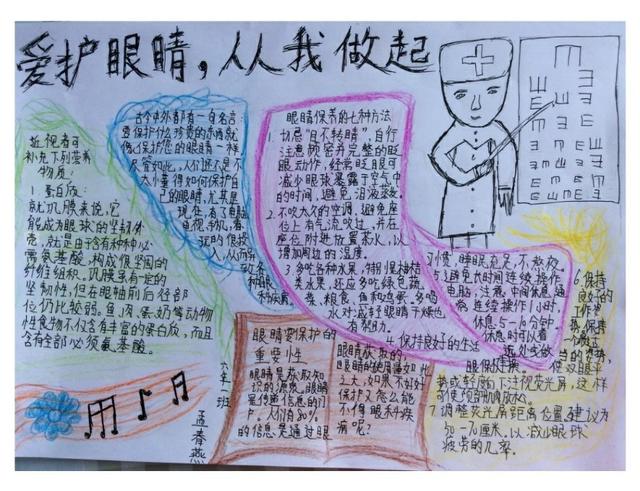 爱护眼睛，从从我做起
近视者可
补充下列营养
物质：
1.蛋白质：
就巩膜来说，它
能成为眼球的坚韧外
壳，就是由于含有种种必
需氨基酸，构成很坚固的
纤维组织。巩膜虽有一定的
坚韧性，但在眼轴前后径部
位仍比较弱。鱼、肉、蛋、奶等动物
性食物不仅含有丰富的蛋白质，而且
含有全部必须氨基酸。
古今中外都有一句名言：
要保护什么珍贵的东西就
像保护您的眼睛一样。
尽管如此，人们还不是不
太懂得如何保护自
己的眼睛，尤其是
现在，有了电脑
电视、手机，看
玩的很投
入，从而
导致各
种眼
科疾病。
眼睛保养的七种方法
1.切忌“目不转睛”，自行
注意频密并完整的眨
眼动作，经常眨眼可
减少眼球暴露于空气中
的时间，避免泪液蒸发。
2.不吹太久的空调，避免座
位上有气流吹过，并在
座位附近放置茶水，以
增加周边的湿度。
3.多吃各种水果，特别是柑桔
类水果，还应多吃绿色蔬
菜、粮食、鱼和鸡蛋，多喝
水对减轻眼睛干燥也
有帮助。
4.保持良好的生活
习惯，睡眠充足，不熬夜。
5.避免长时间连续操作
电脑，注意中间休息，通
常连续操作1小时，
休息5—10分钟。
休息时可以看
远处或做
眼保健操。
6.保持
良好的
工作姿
势。保持
一个最适
当的姿势，
使双眼平
势或轻度向下注视荧光屏，这样
可使颈部肌肉放松。
7.调整荧光屏距离位置，建议为
50—70厘米。以减少眼球
疲劳的几率。
眼睛要保护的
重要性
眼睛是获取知
识的源泉。眼睛
是传递信息的门
户。人们有80%
的信息是通过眼
睛获取的。
眼睛的使用量如此
之大，如果不好好
保护又怎么能
不得眼科疾
病呢？
六年一班
孟春燕